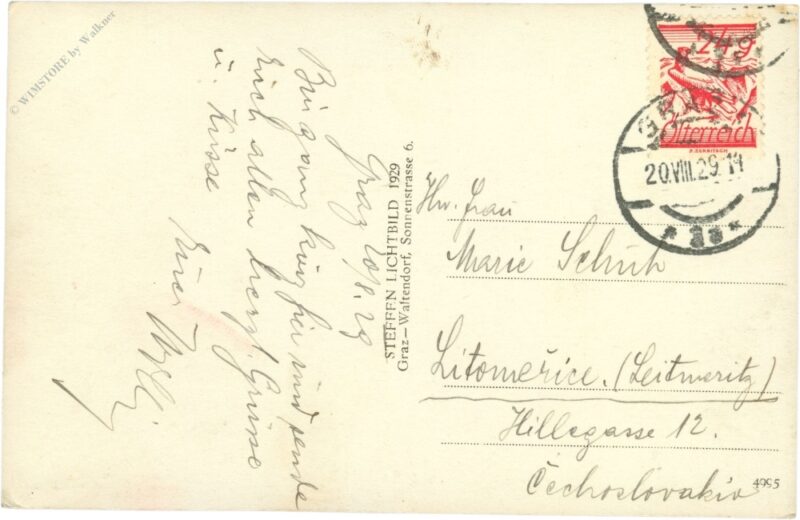 © WIMSTORE by Walkner
Graz 20/8.29
Bin ganz kurz hier und sende
Euch allen herzl. Grüsse
u. Küsse
Eure
STEFFEN LICHTBILD 1929
Graz—Waltendorf, Sonnenstrasse 6.
24g
Österreich
GRAZ
20.VIII.29.14
* 3a *
Hw. Frau
Marie Schuh
Litoměřice. (Leitmeritz)
Hillegasse 12.
Čechoslovakia
4995